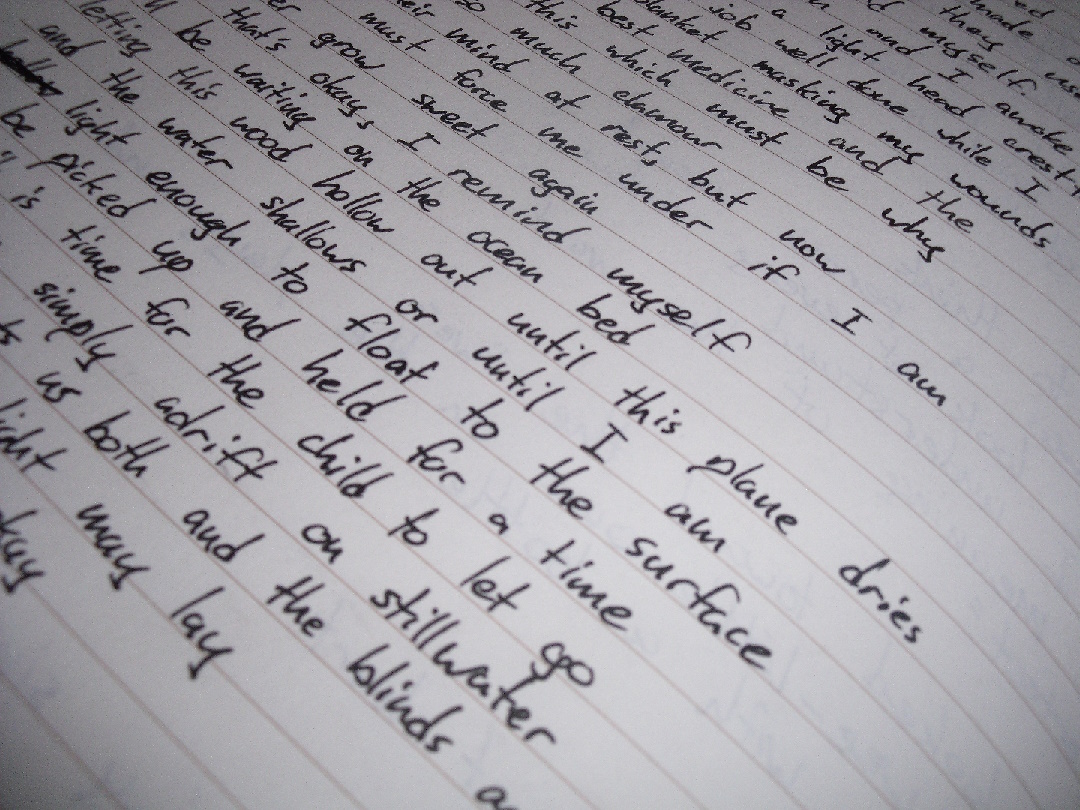 made
they
myself
and I awake
a light head crest
job well done while I
blanket masking my wounds
best medicine and the
this which must be why
so much clamour
their mind at rest, but now
must force me under if I am
grow sweet again
that's okay, I remind myself
be waiting on the ocean bed
letting this wood hollow out until this plane dries
and the water shallows or until I am
light enough to float to the surface
be picked up and held for a time
" is time for the child to let go
simply adrift on stillwater
us both and the blinds
light may lay
okay